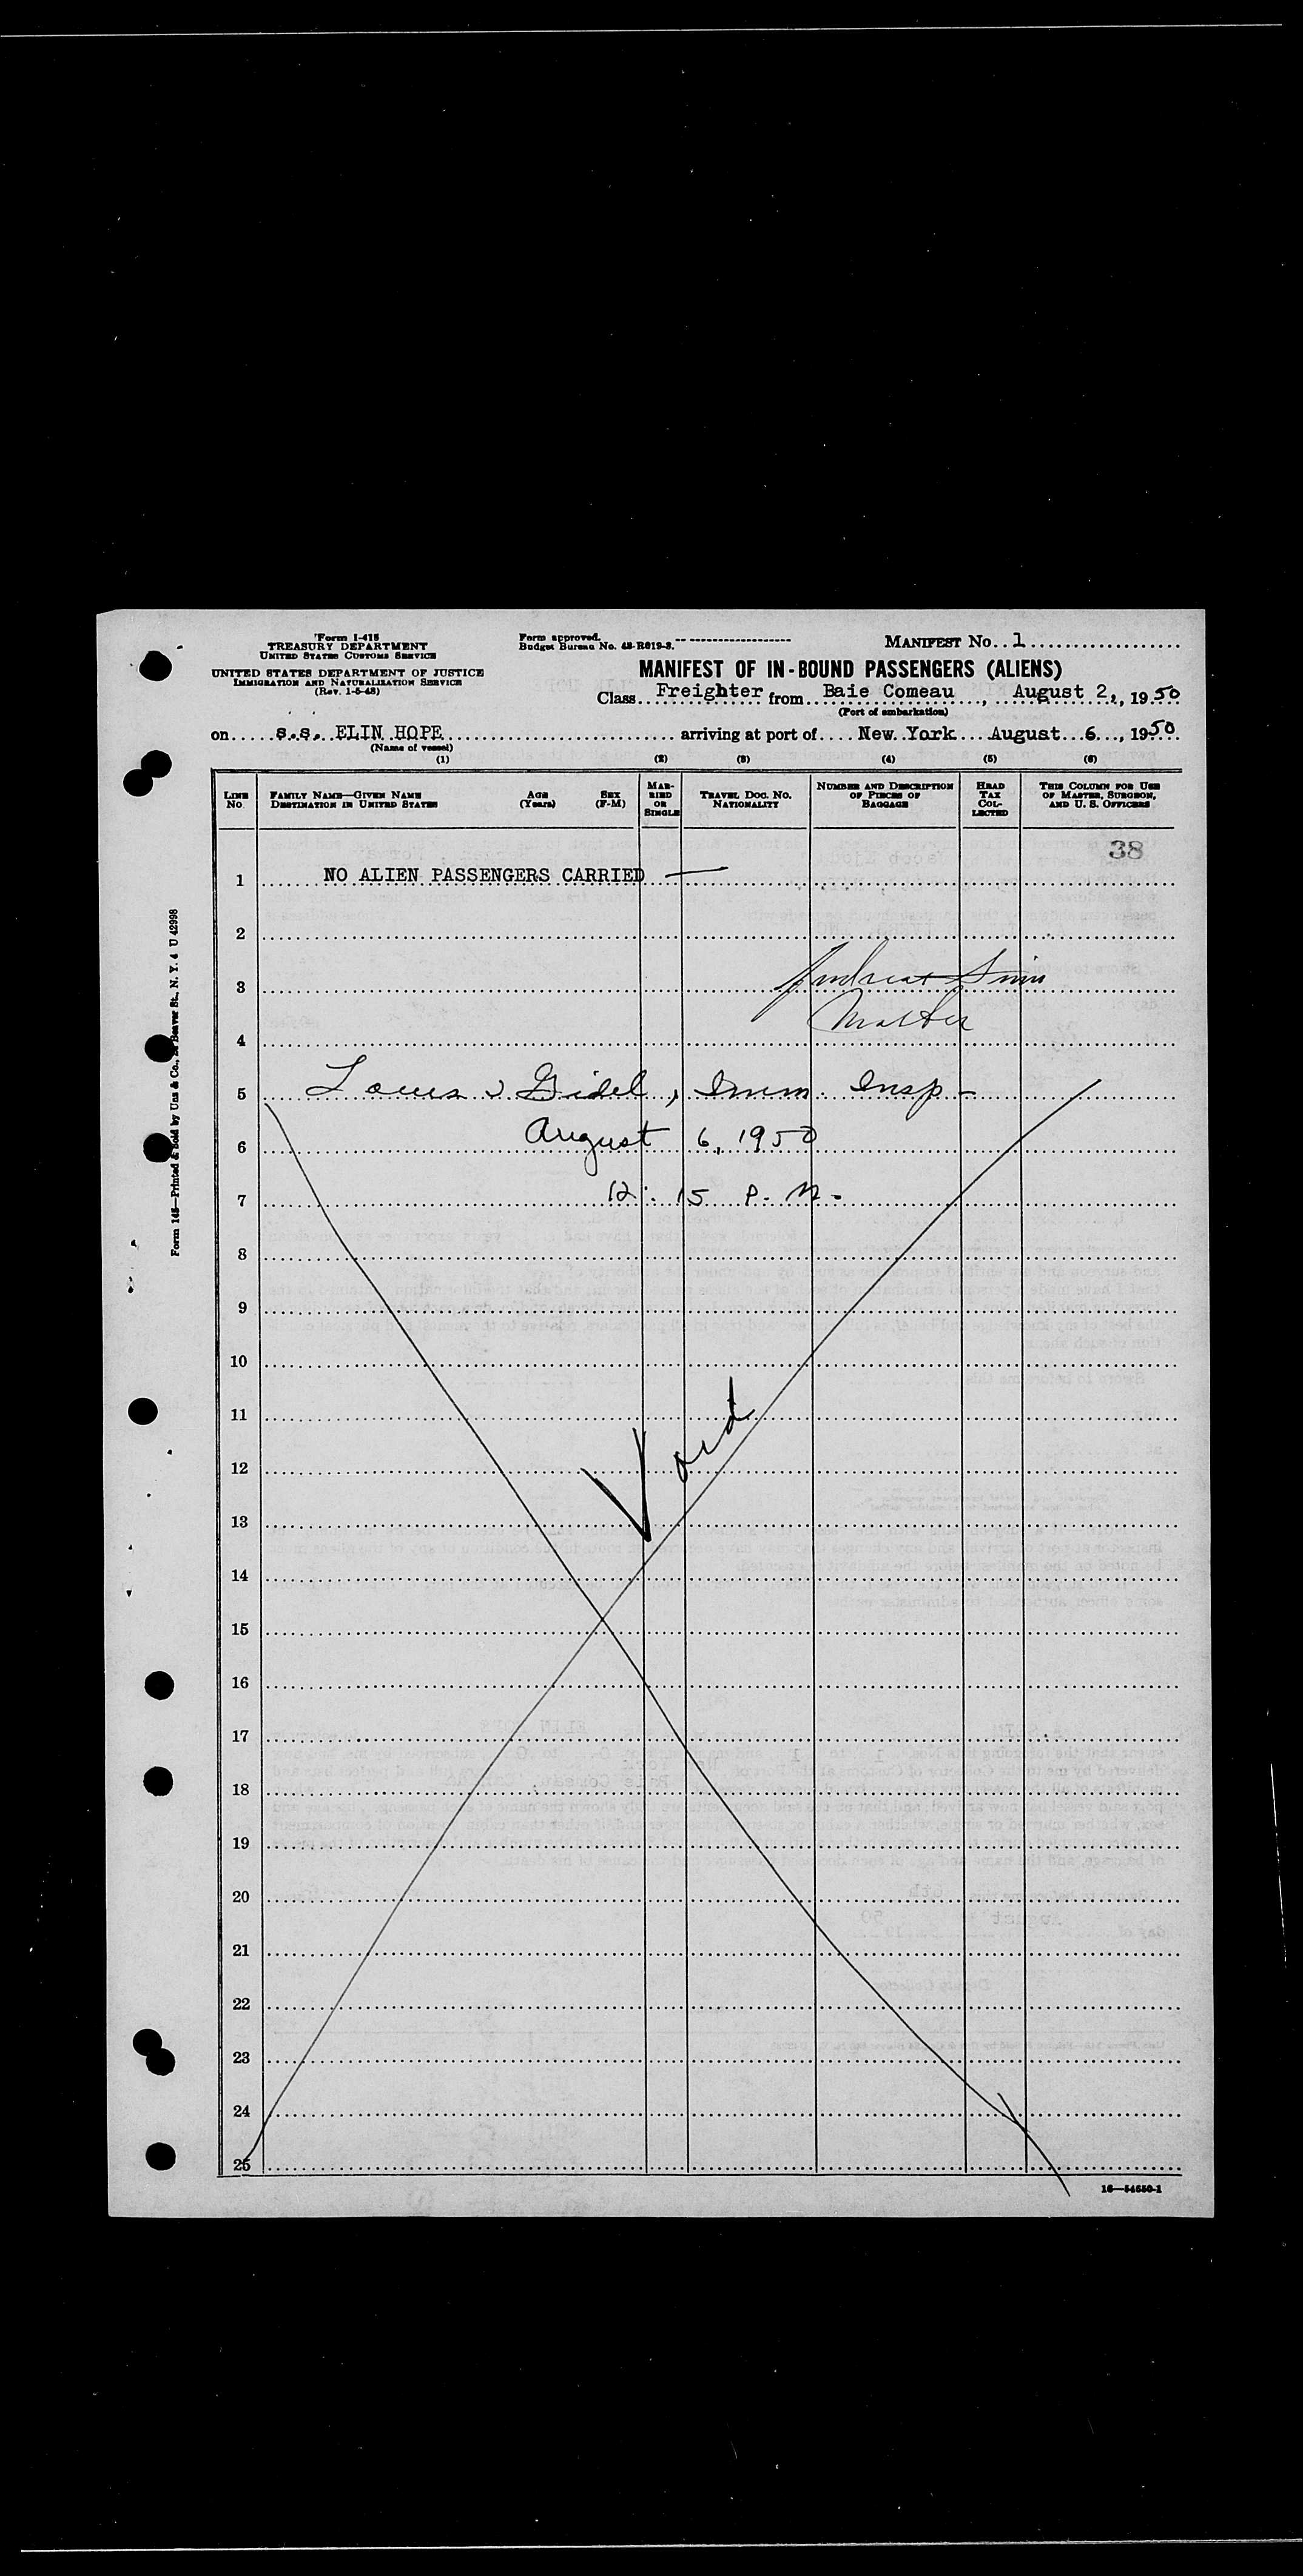 Form I-415
TREASURY DEPARTMENT
UNITED STATES CUSTOMS SERVICE
UNITED STATES DEPARTMENT OF JUSTICE
IMMIGRATION AND NATURALIZATION SERVICE
(Rev. 1-5-48)
Form approved.
Budget Bureau No. 43-R019-3.
MANIFEST No. 1
MANIFEST OF IN-BOUND PASSENGERS (ALIENS)
Class Freighter from Baie Comeau, August 2, 1950
(Port of embarkation)
on s.s. ELIN HOPE arriving at port of New York August 6, 1950
(Name of vessel)
(1) (2) (3) (4) (5) (6)
LINE No. FAMILY NAME—GIVEN NAME DESTINATION IN UNITED STATES AGE (Years) SEX (F-M) MARRIED OR SINGLE TRAVEL DOC. No. NATIONALITY NUMBER AND DESCRIPTION OF PIECES OF BAGGAGE HEAD TAX COLLECTED THIS COLUMN FOR USE OF MASTER, SURGEON, AND U. S. OFFICERS
38
1 NO ALIEN PASSENGERS CARRIED —
2
3
Master
4
5 Louis Gidel, Imm. Insp-
6 August 6, 1950
7 12:15 P.M.
8
9
10
11
Void
12
13
14
15
16
17
18
19
20
21
22
23
24
25
16—54650-1
Form 145—Printed & Sold by Unz & Co., Beaver St., N. Y. 4 U 42998